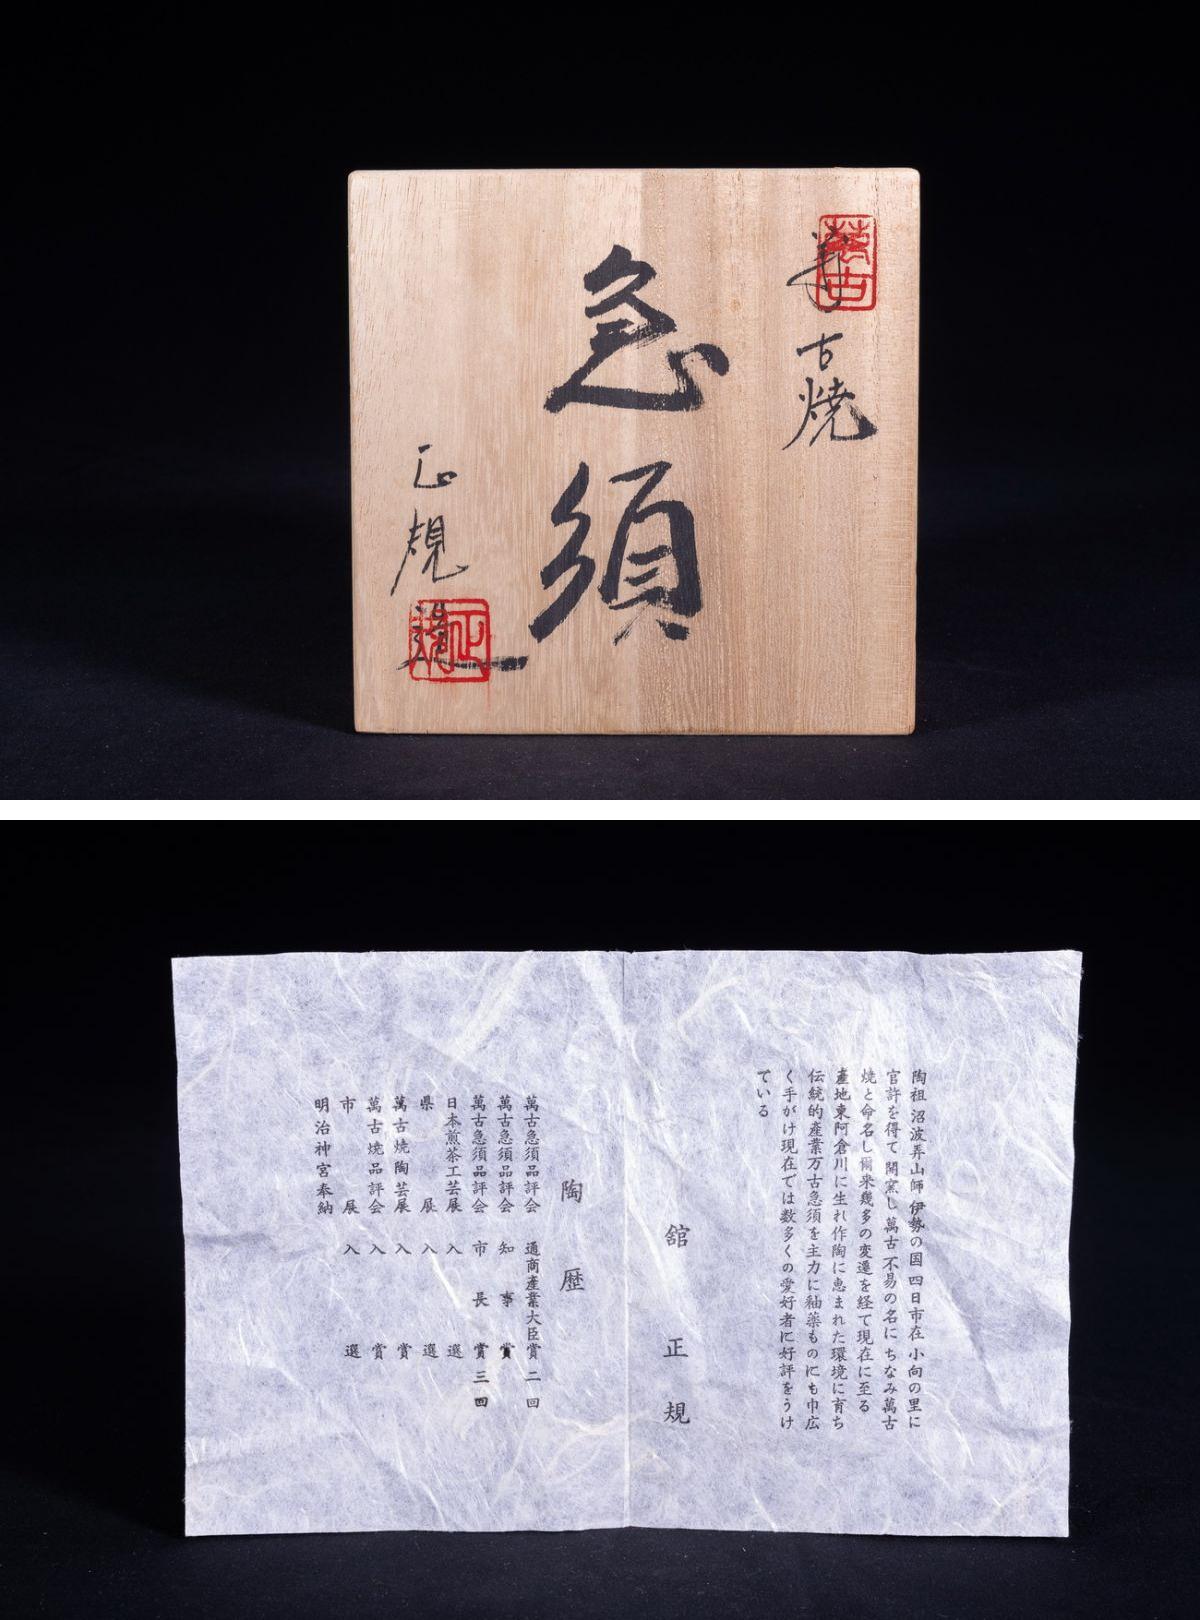 萬古
萬古焼
急須
正規造
正規
陶祖 沼波弄山師 伊勢の国 四日市在 小向の里に
官許を得て 開窯し 萬古 不易の名に ちなみ萬古
焼と命名し爾来幾多の変遷を経て現在に至る
産地東阿倉川に生れ作陶に恵まれた環境に育ち
伝統的産業万古急須を主力に釉薬ものにも巾広
く手がけ現在では数多くの愛好者に好評をうけ
ている
舘 正規
陶歴
萬古急須品評会 通商産業大臣賞 二回
萬古急須品評会 知事賞
萬古急須品評会 市長賞 三回
日本煎茶工芸展 入選
県展 入選
萬古焼陶芸展 入賞
萬古焼品評会 入賞
市展 入選
明治神宮奉納